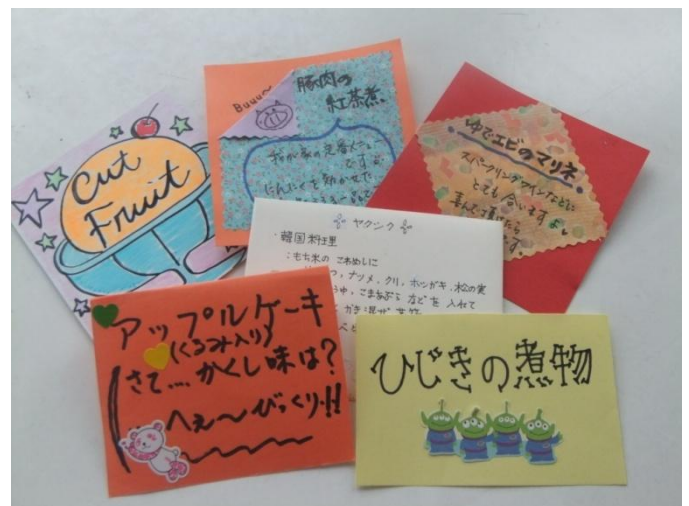 Cut
Fruit
Buuu~
豚肉の
紅茶煮
我が家の定番メニュー
です
にんにくを効かせて
ゆでエビのマリネ
スパークリングワインなどに
とても合いますよ
喜んで頂けたら
です
ヤクシク
・韓国料理
:もち米の こわめしに
つ、ナツメ、クリ、ホシガキ、松の実
ゆ、ごまあぶら などを 入れて
かき混ぜ
べと
アップルケーキ
(くるみ入り)
さて....かくし味は?
へぇ〜びっくり!!
ひじきの煮物